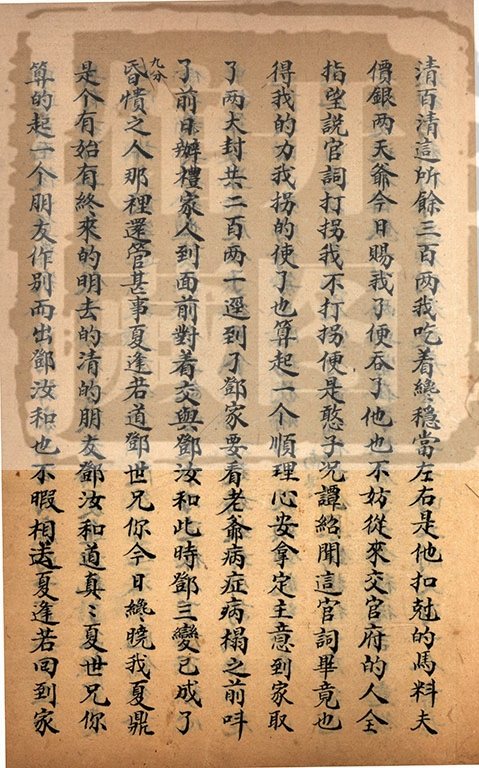 清百清這所餘三百兩我吃着纔穩當左右是他扣尅的馬料夫
價銀两天爺今日賜我了便吞了他也不妨從來交官府的人全
指望説官詞打拐我不打拐便是憨子况譚紹聞這官詞畢竟也
得我的力我拐的使了也算起一个順理心安拿定主意到家取
了两大封共二百两一逕到了鄧家要看老爺病症病榻之前呌
了前日辦禮家人到面前對着交與鄧汝和此時鄧三變已成了
九分
昏憒之人那裡還管甚事夏逢若道鄧世兄你今日纔曉我夏鼎
是个有始有終來的明去的清的朋友鄧汝和道真〻夏世兄你
算的起一个朋友作别而出鄧汝和也不暇相送夏逢若回到家